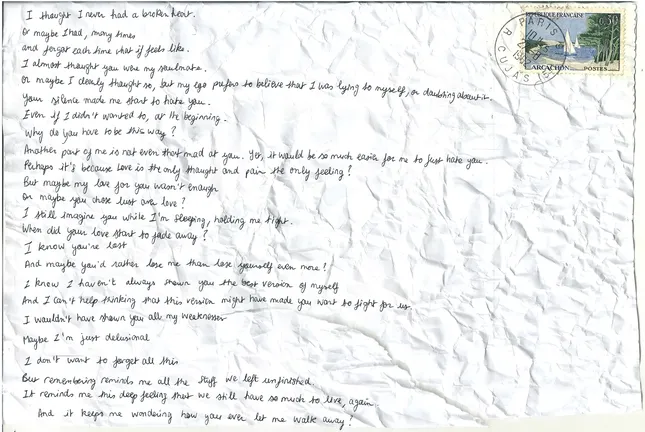 I thought I never had a broken heart.
Or maybe I had, many times
and forgot each time what if feels like.
I almost thought you were my soulmate.
Or maybe I clearly thought so, but my ego prefers to believe that I was lying to myself, or doubting about it.
Your silence made me start to hate you.
Even if I didn't wanted to, at the beginning.
Why do you have to be this way?
Another part of me is not even that mad at you. Yet, it would be so much easier for me to just hate you.
Perhaps it's because love is the only thought and pain the only feeling?
But maybe my love for you wasn't enough
Or maybe you chose lust over love?
I still imagine you while I'm sleeping, holding me tight.
When did your love start to fade away?
I know you're lost
And maybe you'd rather lose me than lose yourself even more?
I know I haven't always shown you the best version of myself
And I can't help thinking that this version might have made you want to fight for us.
I wouldn't have shown you all my weaknesses
Maybe I'm just delusional
I don't want to forget all this
But remembering reminds me all the stuff we left unfinished.
It reminds me this deep feeling that we still have so much to live, again.
And it keeps me wondering how you ever let me walk away?
RÉPUBLIQUE FRANÇAISE
0,30
ARCACHON
POSTES
PARIS
R. CUJAS